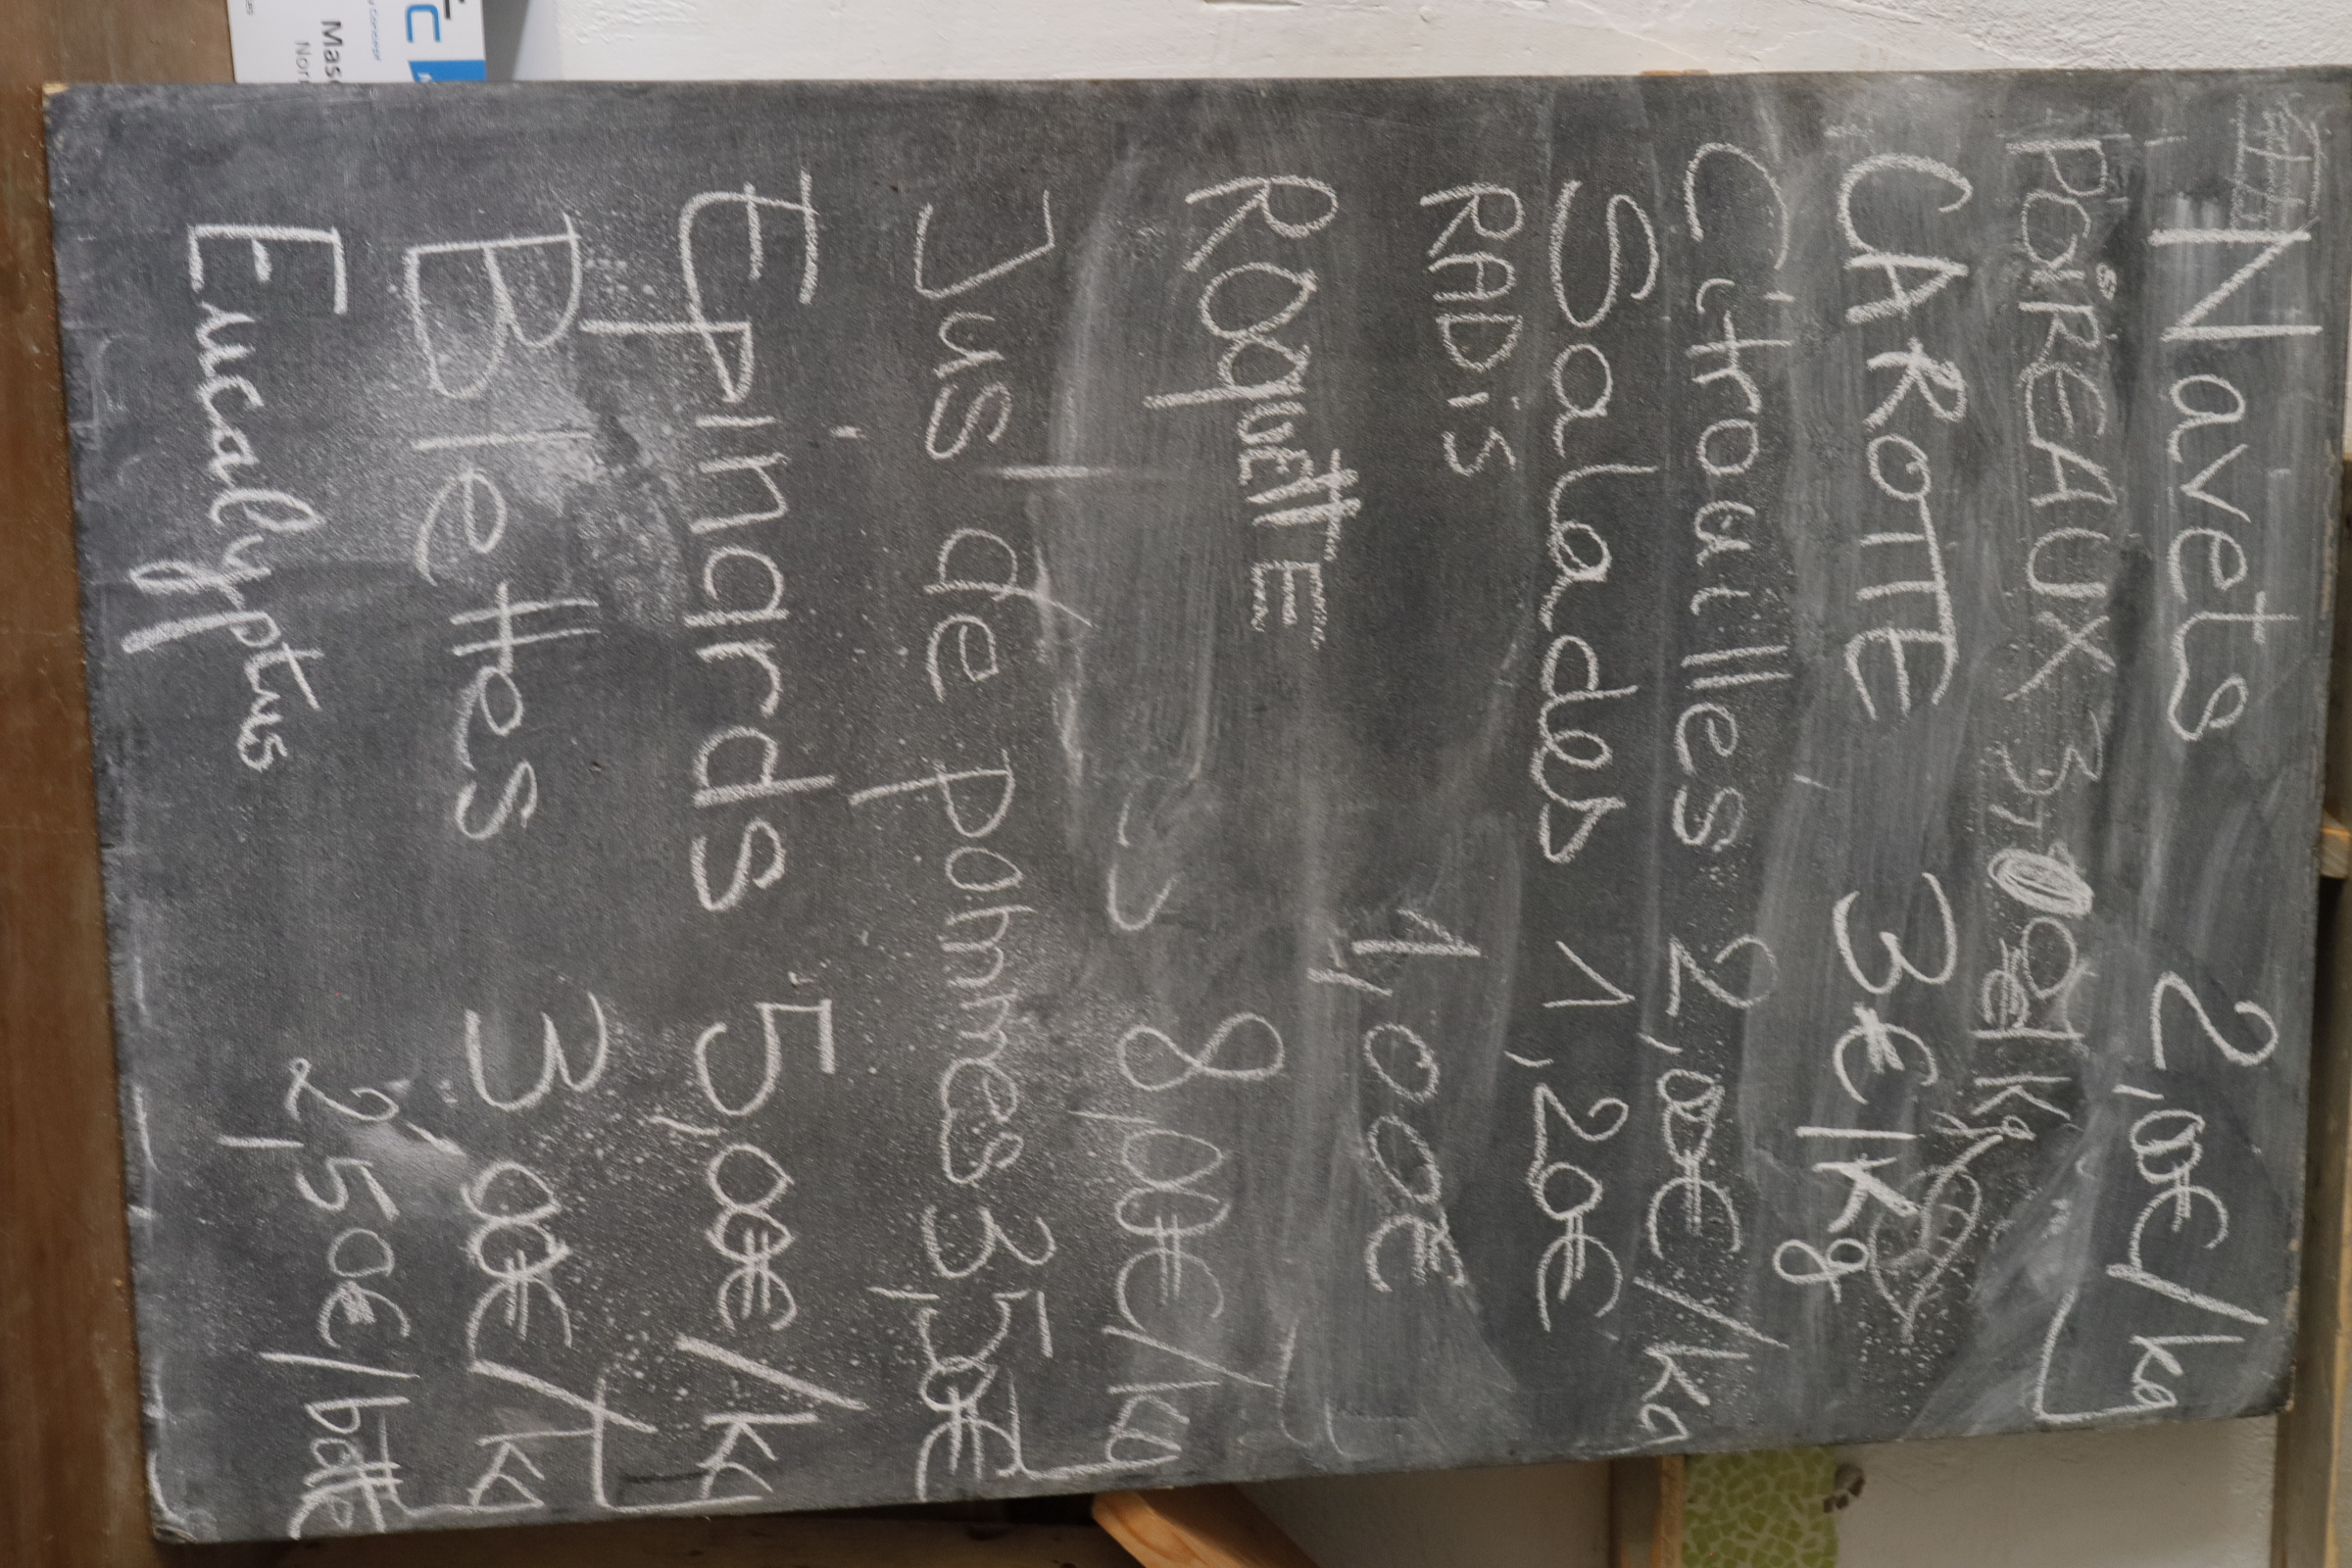 Navets 2,00€/kg
POiREAUX 3,00€/Kg
CAROTTE 3€/Kg
Citrouilles 2,00€/kg
Salades 1,20€
RADiS 1,00€
ROquettE 8,00€/kg
Jus de pommes 3,50€
Epinards 5,00€/kg
Blettes 3,00€/kg
Eucalyptus 2,50€/botte
Concept